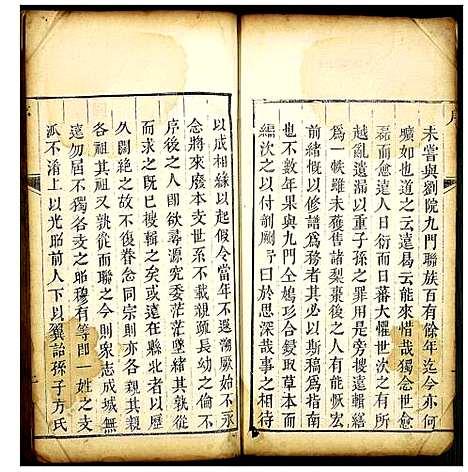 未嘗與劉院九門聯族百有餘年迄今亦何
曠如也道之云遠曷云能來惜哉獨念世愈
磊而愈遠人日衍而日蕃大懼世次之有所
越亂遺漏以重予孫之罪用是旁蒐
為一帙雖未獲售諸梨棗後之人有能恢宏
前緒慨以修譜為務者其與斯為指南
也不數年果與九門仝鳩珍合鋟取草本而
繻次之以付剞劂予曰於思深哉事之相待
以成相緣以起假令當年不遡厥始不永
念將來廢本支世系不載親疏長幼之倫不
序後之人即欲尋源究委茫茫墜緒其孰從
而求之既巳搜輯之矣或遠在縣北者以歷
久闊絕之故不復眷念同宗則亦各其親
各祖其祖又孰從而聯之今則衆志成城無
遠勿屆也不獨各支之昭穆有等即一姓之支
派不淆上以光昭前人下以翼詒孫子方氏